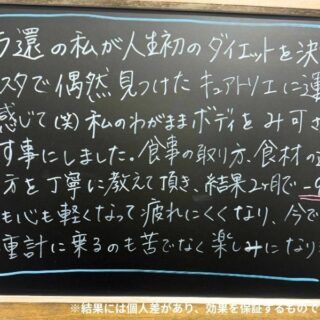 う還の私が人生初のダイエットを決
スタで偶然見つけたキュアトリエに運
感じて(笑)私のわがままボディをみ可さ
す事にしました。食事の取り方、食材の
方を丁寧に教えて頂き、結果2ヶ月で-9
も心も軽くなって疲れにくくなり、今で
重計に乗るのも苦でなく楽しみになり
※結果には個人差があり、効果を保証するもので